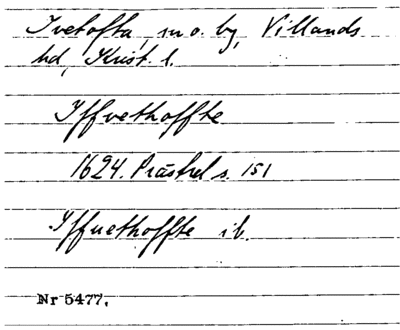 Ivetofta, sn o. by, Villands
hd, Krist. l.
Iffvethoffte
1624. Präsrel s. 151
Iffuethoffte ib.
Nr 5477.